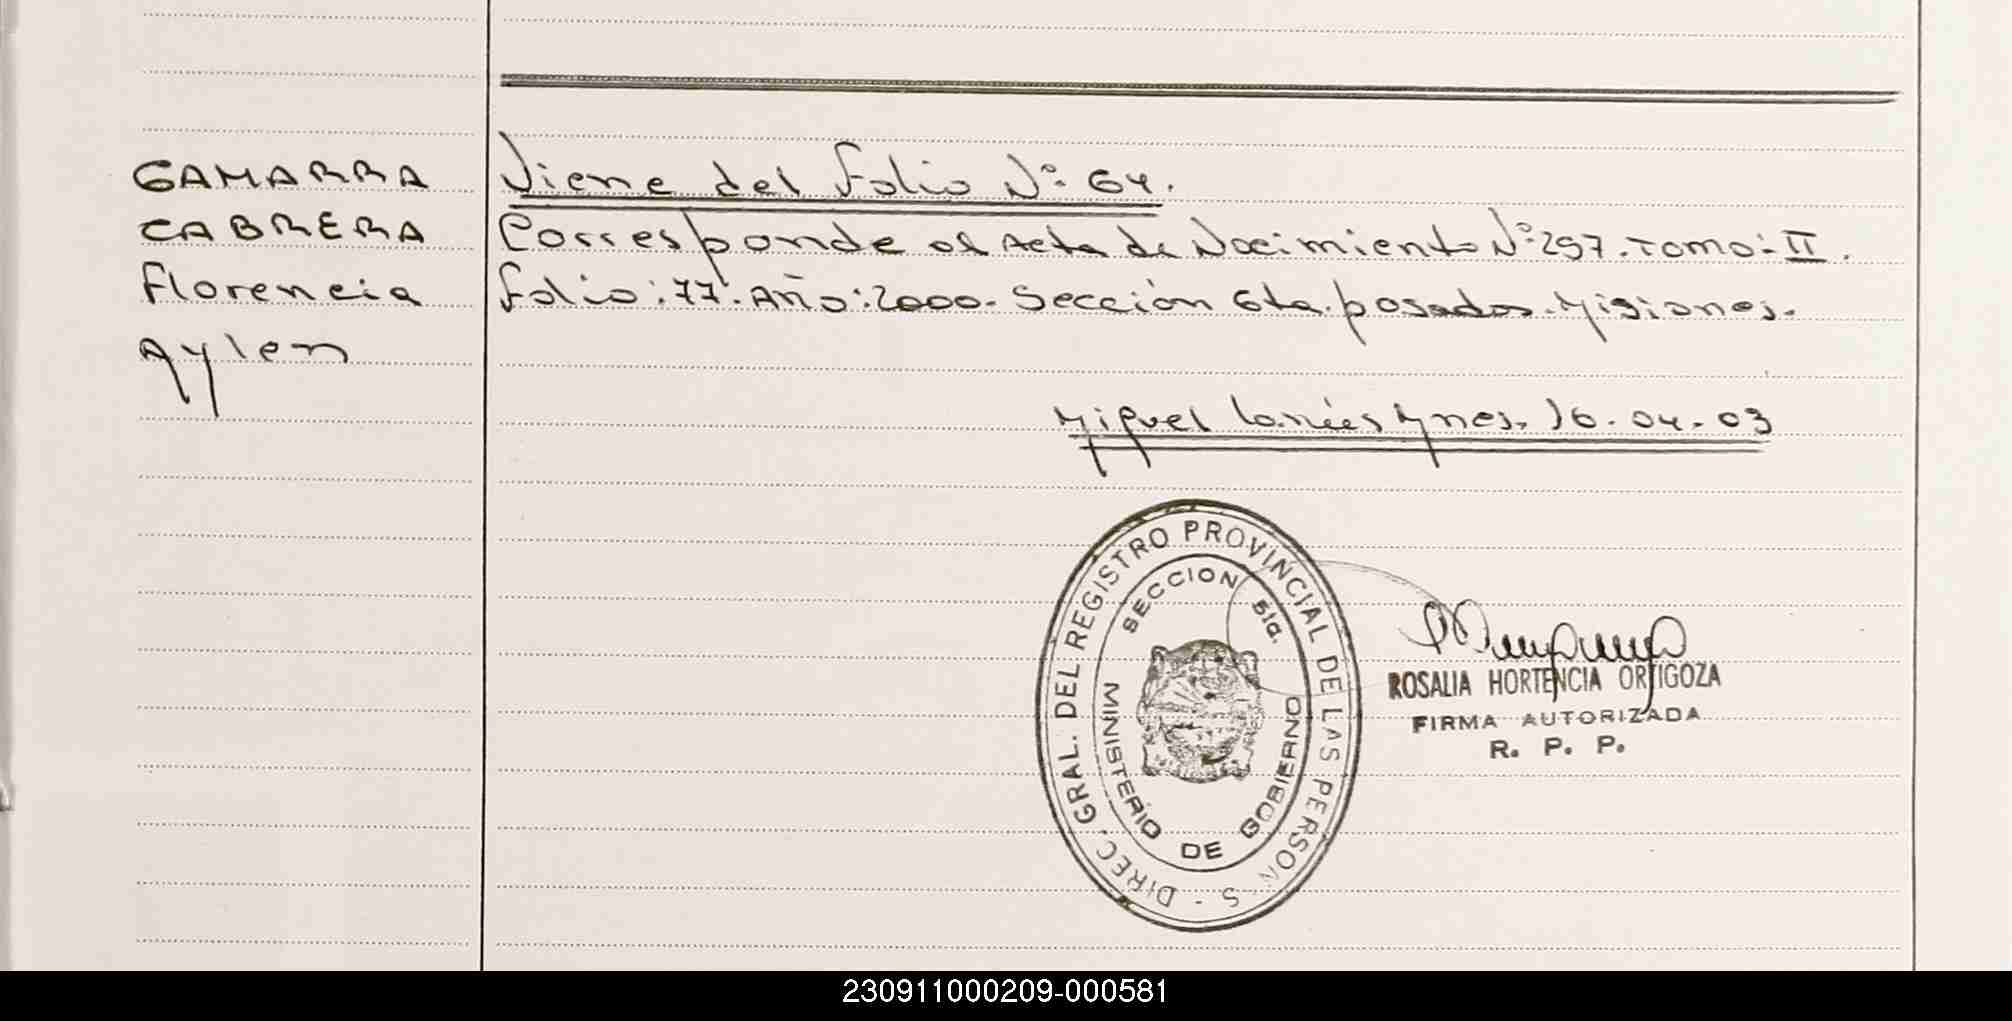 GAMARRA
CABRERA
Florencia
Aylen
Viene del Folio Nº 64.
Corresponde al Acta de Nacimiento Nº 297. Tomo: II.
Folio: 77. Año: 2000. Sección 6ta. posadas. Misiones.
Miguel Ynes. 16.04.03
DIREC. GRAL. DEL REGISTRO PROVINCIAL DE LAS PERSON S -
SECCION 5ta.
MINISTERIO DE GOBIERNO
ROSALIA HORTENCIA ORTIGOZA
FIRMA AUTORIZADA
R. P. P.
230911000209-000581